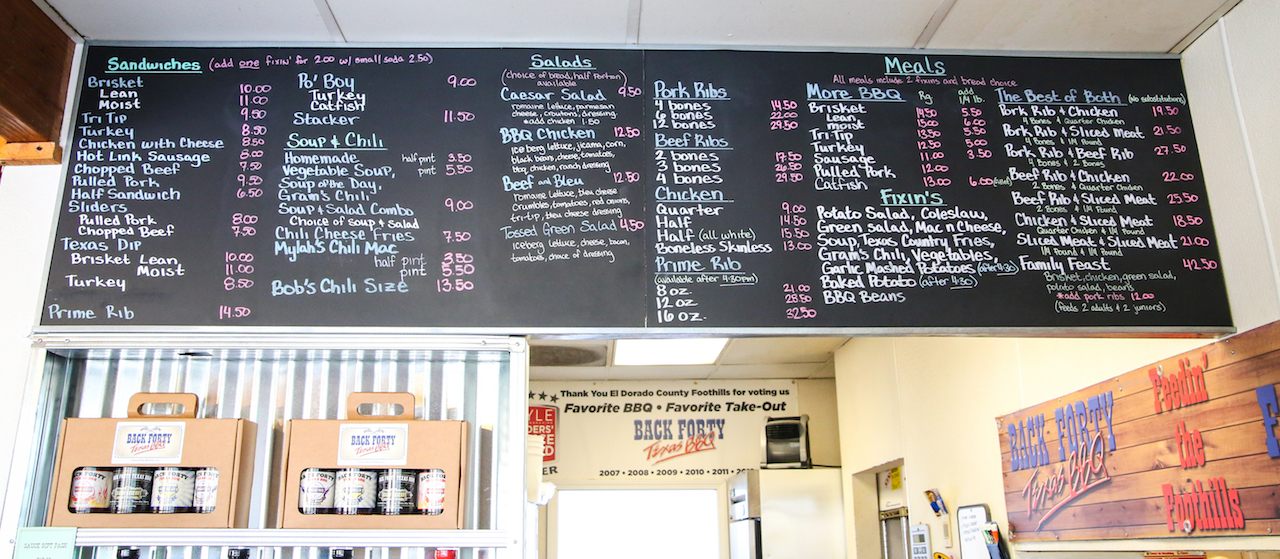 Sandwiches (add one fixin' for 2.00 w/ small soda 2.50)
Brisket
Lean 10.00
Moist 11.00
Tri Tip 9.50
Turkey 8.50
Chicken with Cheese 8.50
Hot Link Sausage 8.00
Chopped Beef 7.50
Pulled Pork 9.50
Half Sandwich 6.50
Sliders
Pulled Pork 8.00
Chopped Beef 7.50
Texas Dip
Brisket Lean 10.00
Moist 11.00
Turkey 8.50
Prime Rib 14.50
Po' Boy 9.00
Turkey
Catfish
Stacker 11.50
Soup & Chili
Homemade half pint 3.50
Vegetable Soup, pint 5.50
Soup of the Day,
Gram's Chili
Soup & Salad Combo 9.00
Choice of Soup & Salad
Chili Cheese Fries 7.50
Mylah's Chili Mac
half pint 3.50
pint 5.50
Bob's Chili Size 13.50
Salads
(choice of bread, half portion available)
Caesar Salad 9.50
romaine lettuce, parmesan
cheese, croutons, dressing
*add chicken 1.50
BBQ Chicken 12.50
iceberg lettuce, jicama, corn,
black beans, cheese, tomatoes,
bbq chicken, ranch dressing
Beef and Bleu 12.50
romaine lettuce, bleu cheese
crumbles, tomatoes, red onions,
tri-tip, bleu cheese dressing
Tossed Green Salad 4.50
iceberg lettuce, cheese, bacon,
tomatoes, choice of dressing
Meals
All meals include 2 fixins and bread choice
Pork Ribs
4 bones 14.50
6 bones 22.00
12 bones 29.50
Beef Ribs
2 bones 17.50
3 bones 26.50
4 bones 29.50
Chicken
Quarter 9.00
Half 14.50
Half (all white) 15.50
Boneless Skinless 13.00
Prime Rib
(available after 4:30pm)
8 oz. 21.00
12 oz. 28.50
16 oz. 32.50
More BBQ Rg add 1/4 lb.
Brisket
Lean 14.50 5.50
Moist 15.00 6.00
Tri-Tip 13.50 5.50
Turkey 12.50 5.00
Sausage 11.00 3.50
Pulled Pork 12.00
Catfish 13.00 6.00
Fixin's
Potato Salad, Coleslaw,
Green salad, Mac n Cheese,
Soup, Texas Country Fries,
Gram's Chili, Vegetables,
Garlic Mashed Potatoes (after 4:30)
Baked Potato (after 4:30)
BBQ Beans
The Best of Both (No substitutions)
Pork Rib & Chicken 19.50
4 Bones & Quarter Chicken
Pork Rib & Sliced Meat 21.50
4 Bones & 1/4 Pound
Pork Rib & Beef Rib 27.50
4 Bones & 2 Bones
Beef Rib & Chicken 22.00
2 Bones & Quarter Chicken
Beef Rib & Sliced Meat 23.50
2 Bones & 1/4 Pound
Chicken & Sliced Meat 18.50
Quarter Chicken & 1/4 Pound
Sliced Meat & Sliced Meat 21.00
1/4 Pound & 1/4 Pound
Family Feast 42.50
Brisket, chicken, green salad,
potato salad, beans
*add pork ribs 12.00
(feeds 2 adults & 2 juniors)
Thank You El Dorado County Foothills for voting us
Favorite BBQ • Favorite Take-Out
BACK FORTY
Texas BBQ
2007 • 2008 • 2009 • 2010 • 2011
BACK FORTY
Texas BBQ
BACK FORTY
Texas BBQ
BACK FORTY
Texas BBQ
Feedin'
the
Foothills